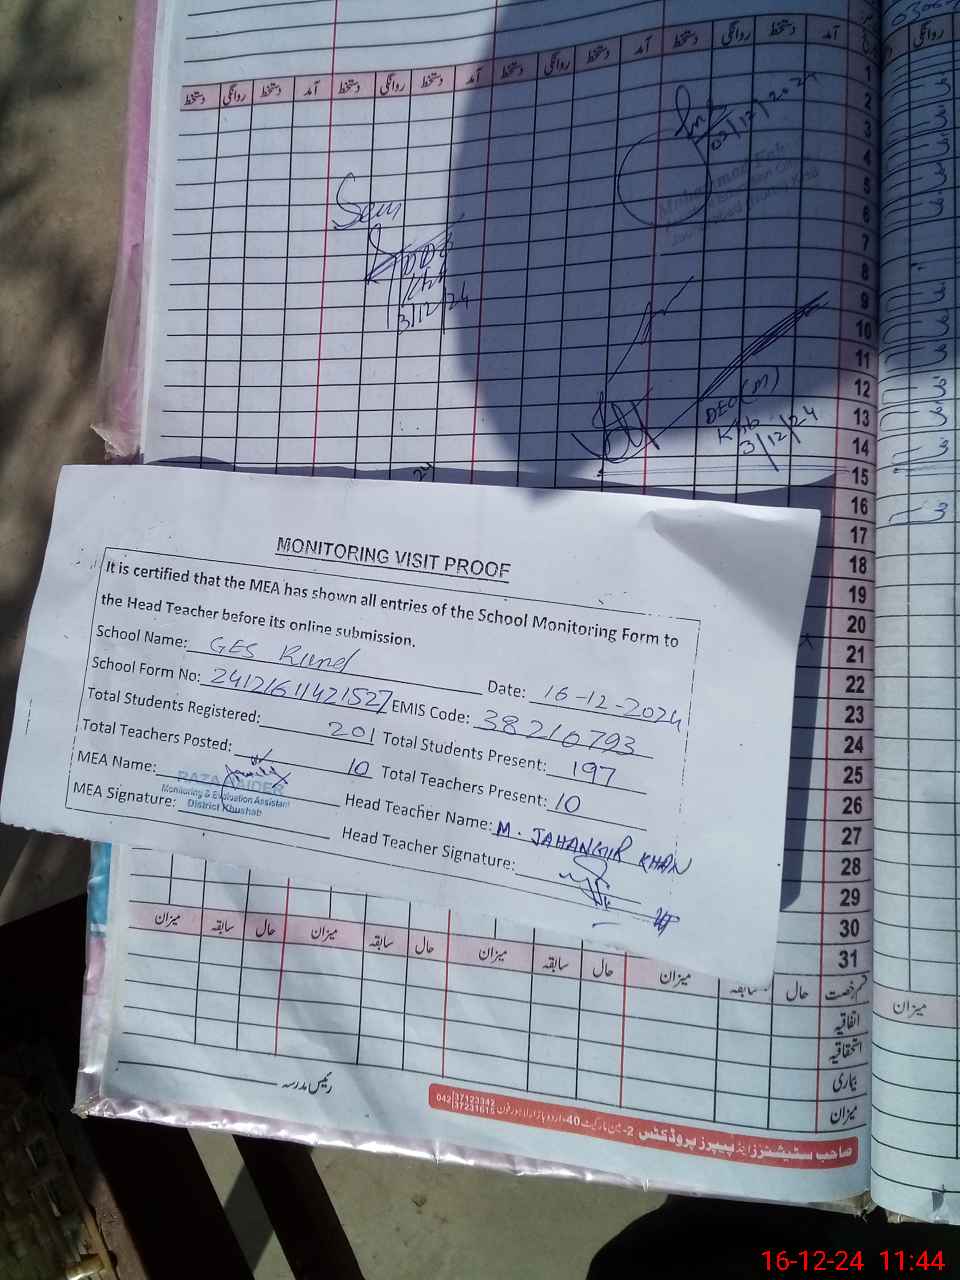 دستخط روانگی دستخط آمد دستخط روانگی دستخط آمد دستخط روانگی دستخط آمد دستخط روانگی دستخط آمد
روانگی
1
2
3
4
5
6
7
8
9
10
11
12
13
14
15
16
17
18
19
20
21
22
23
24
25
26
27
28
29
30
31
03/12/2024
Seen
3/12/24
DEO (M)
Khb
3/12/24
MONITORING VISIT PROOF
It is certified that the MEA has shown all entries of the School Monitoring Form to
the Head Teacher before its online submission.
School Name: GES Rund Date: 16-12-2024
School Form No: 24121611421527 EMIS Code: 38210793
Total Students Registered: 201 Total Students Present: 197
Total Teachers Posted: 10 Total Teachers Present: 10
MEA Name: Head Teacher Name: M. JAHANGIR KHAN
Monitoring & Evaluation Assistant
District Khushab
MEA Signature: Head Teacher Signature:
میزان سابقہ حال میزان سابقہ حال میزان سابقہ حال میزان سابقہ حال قسم رخصت
میزان
اتفاقیہ
استحقاقیہ
بیماری
میزان
رئیس مدرسہ
صاحب سٹیشنرز اینڈ پیپرز پروڈکٹس 2-مین مارکیٹ 40-اردو بازار لاہور فون 042 37123342 37231615
16-12-24 11:44